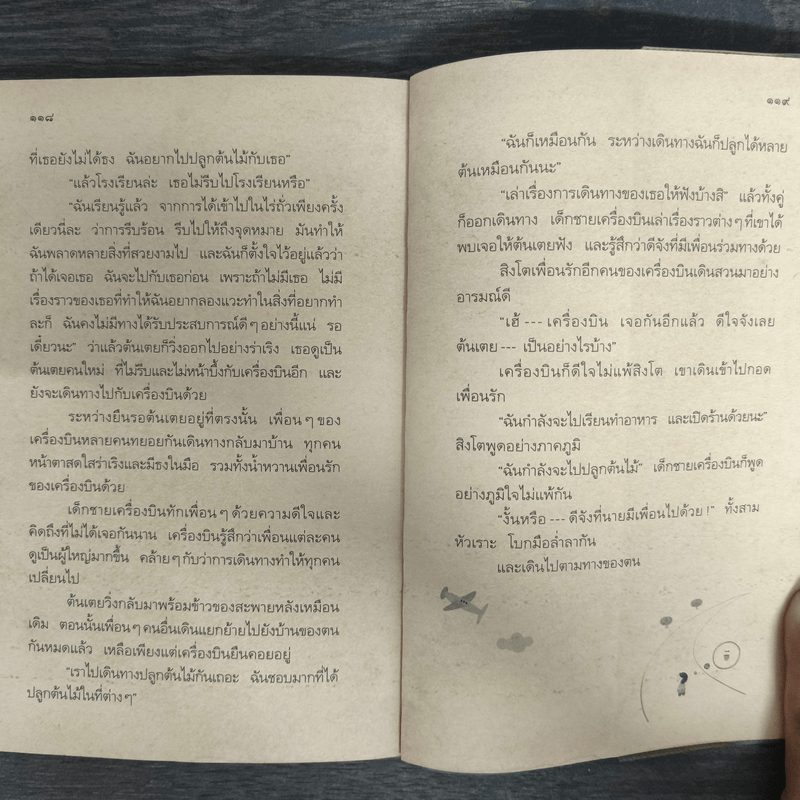 ๑๑๘
ที่เธอยังไม่ได้ธง ฉันอยากไปปลูกต้นไม้กับเธอ”
“แล้วโรงเรียนล่ะ เธอไม่รีบไปโรงเรียนหรือ”
“ฉันเรียนรู้แล้ว จากการได้เข้าไปในไร่ถั่วเพียงครั้ง
เดียวนี่ละ ว่าการรีบร้อน รีบไปให้ถึงจุดหมาย มันทำให้
ฉันพลาดหลายสิ่งที่สวยงามไป และฉันก็ตั้งใจไว้อยู่แล้วว่า
ถ้าได้เจอเธอ ฉันจะไปกับเธอก่อน เพราะถ้าไม่มีเธอ ไม่มี
เรื่องราวของเธอที่ทำให้ฉันอยากลองแวะทำในสิ่งที่อยากทำ
ละก็ ฉันคงไม่มีทางได้รับประสบการณ์ดีๆ อย่างนี้แน่ รอ
เดี๋ยวนะ” ว่าแล้วต้นเตยก็วิ่งออกไปอย่างร่าเริง เธอดูเป็น
ต้นเตยคนใหม่ ที่ไม่รีบและไม่หน้าบึ้งกับเครื่องบินอีก และ
ยังจะเดินทางไปกับเครื่องบินด้วย
ระหว่างยืนรอต้นเตยอยู่ที่ตรงนั้น เพื่อนๆ ของ
เครื่องบินหลายคนทยอยกันเดินทางกลับมาบ้าน ทุกคน
หน้าตาสดใสร่าเริงและมีธงในมือ รวมทั้งน้ำหวานเพื่อนรัก
ของเครื่องบินด้วย
เด็กชายเครื่องบินทักเพื่อนๆ ด้วยความดีใจและ
คิดถึงที่ไม่ได้เจอกันนาน เครื่องบินรู้สึกว่าเพื่อนแต่ละคน
ดูเป็นผู้ใหญ่มากขึ้น คล้ายๆ กับว่าการเดินทางทำให้ทุกคน
เปลี่ยนไป
ต้นเตยวิ่งกลับมาพร้อมข้าวของสะพายหลังเหมือน
เดิม ตอนนั้นเพื่อนๆ คนอื่นเดินแยกย้ายไปยังบ้านของตน
กันหมดแล้ว เหลือเพียงแต่เครื่องบินยืนคอยอยู่
“เราไปเดินทางปลูกต้นไม้กันเถอะ ฉันชอบมากที่ได้
ปลูกต้นไม้ในที่ต่างๆ”
๑๑๙
“ฉันก็เหมือนกัน ระหว่างเดินทางฉันก็ปลูกได้หลาย
ต้นเหมือนกันนะ”
“เล่าเรื่องการเดินทางของเธอให้ฟังบ้างสิ” แล้วทั้งคู่
ก็ออกเดินทาง เด็กชายเครื่องบินเล่าเรื่องราวต่างๆ ที่เขาได้
พบเจอให้ต้นเตยฟัง และรู้สึกว่าดีจังที่มีเพื่อนร่วมทางด้วย
สิงโตเพื่อนรักอีกคนของเครื่องบินเดินสวนมาอย่าง
อารมณ์ดี
“เฮ้ --- เครื่องบิน เจอกันอีกแล้ว ดีใจจังเลย
ต้นเตย --- เป็นอย่างไรบ้าง”
เครื่องบินก็ดีใจไม่แพ้สิงโต เขาเดินเข้าไปกอด
เพื่อนรัก
“ฉันกำลังจะไปเรียนทำอาหาร และเปิดร้านด้วยนะ”
สิงโตพูดอย่างภาคภูมิ
“ฉันกำลังจะไปปลูกต้นไม้” เด็กชายเครื่องบินก็พูด
อย่างภูมิใจไม่แพ้กัน
“งั้นหรือ --- ดีจังที่นายมีเพื่อนไปด้วย !” ทั้งสาม
หัวเราะ โบกมือล่ำลากัน
และเดินไปตามทางของตน